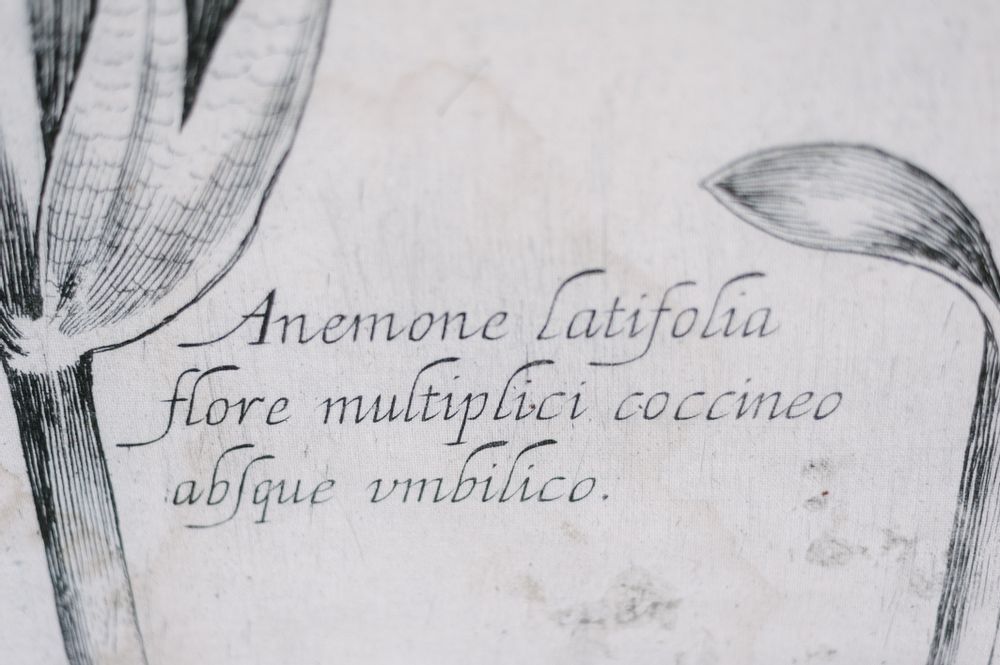 Anemone latifolia
flore multiplici coccineo
abſque vmbilico.